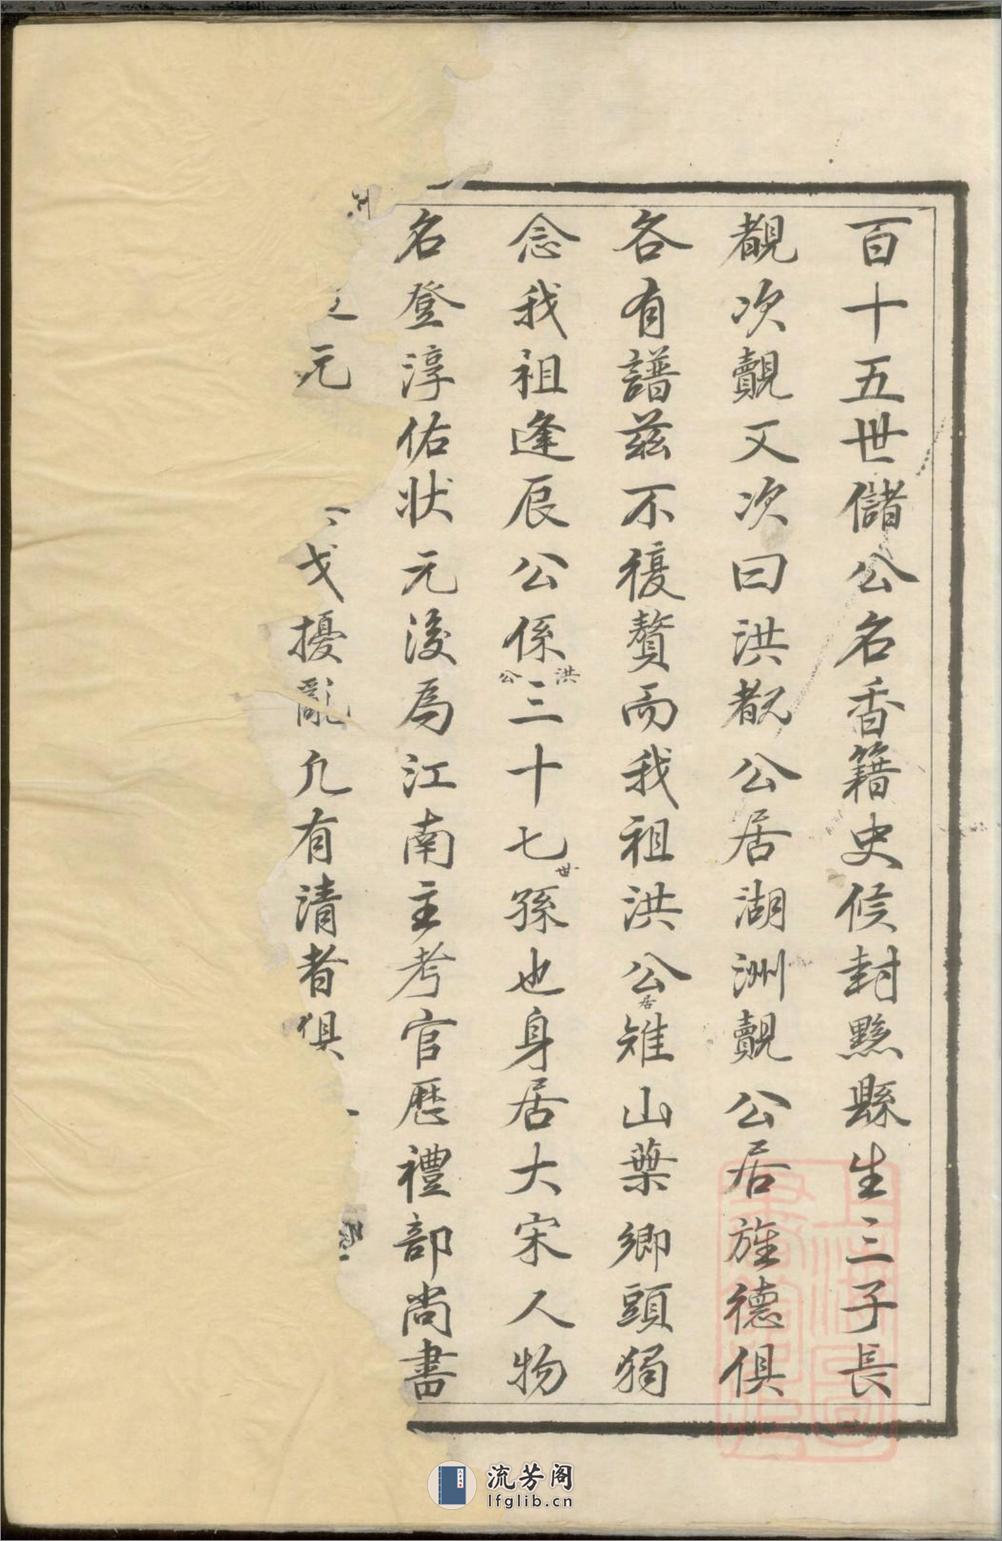 百十五世儲公名香籍史侯封黟縣生三子長
覩次覿又次曰洪覩公居湖洲覿公居旌德俱
各有譜茲不復贅而我祖洪公居雉山葉鄉頭獨
念我祖逢辰公係洪公三十七世孫也身居大宋人物
名登淳佑狀元後為江南主考官歷禮部尚書
元
擾亂凢有清者俱
上海圖書館藏
流芳阁
lfglib.cn